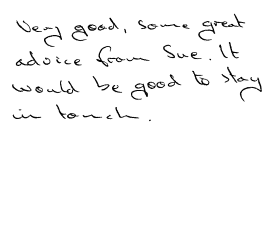 Very good, some great
advice from Sue. It
would be good to stay
in touch.